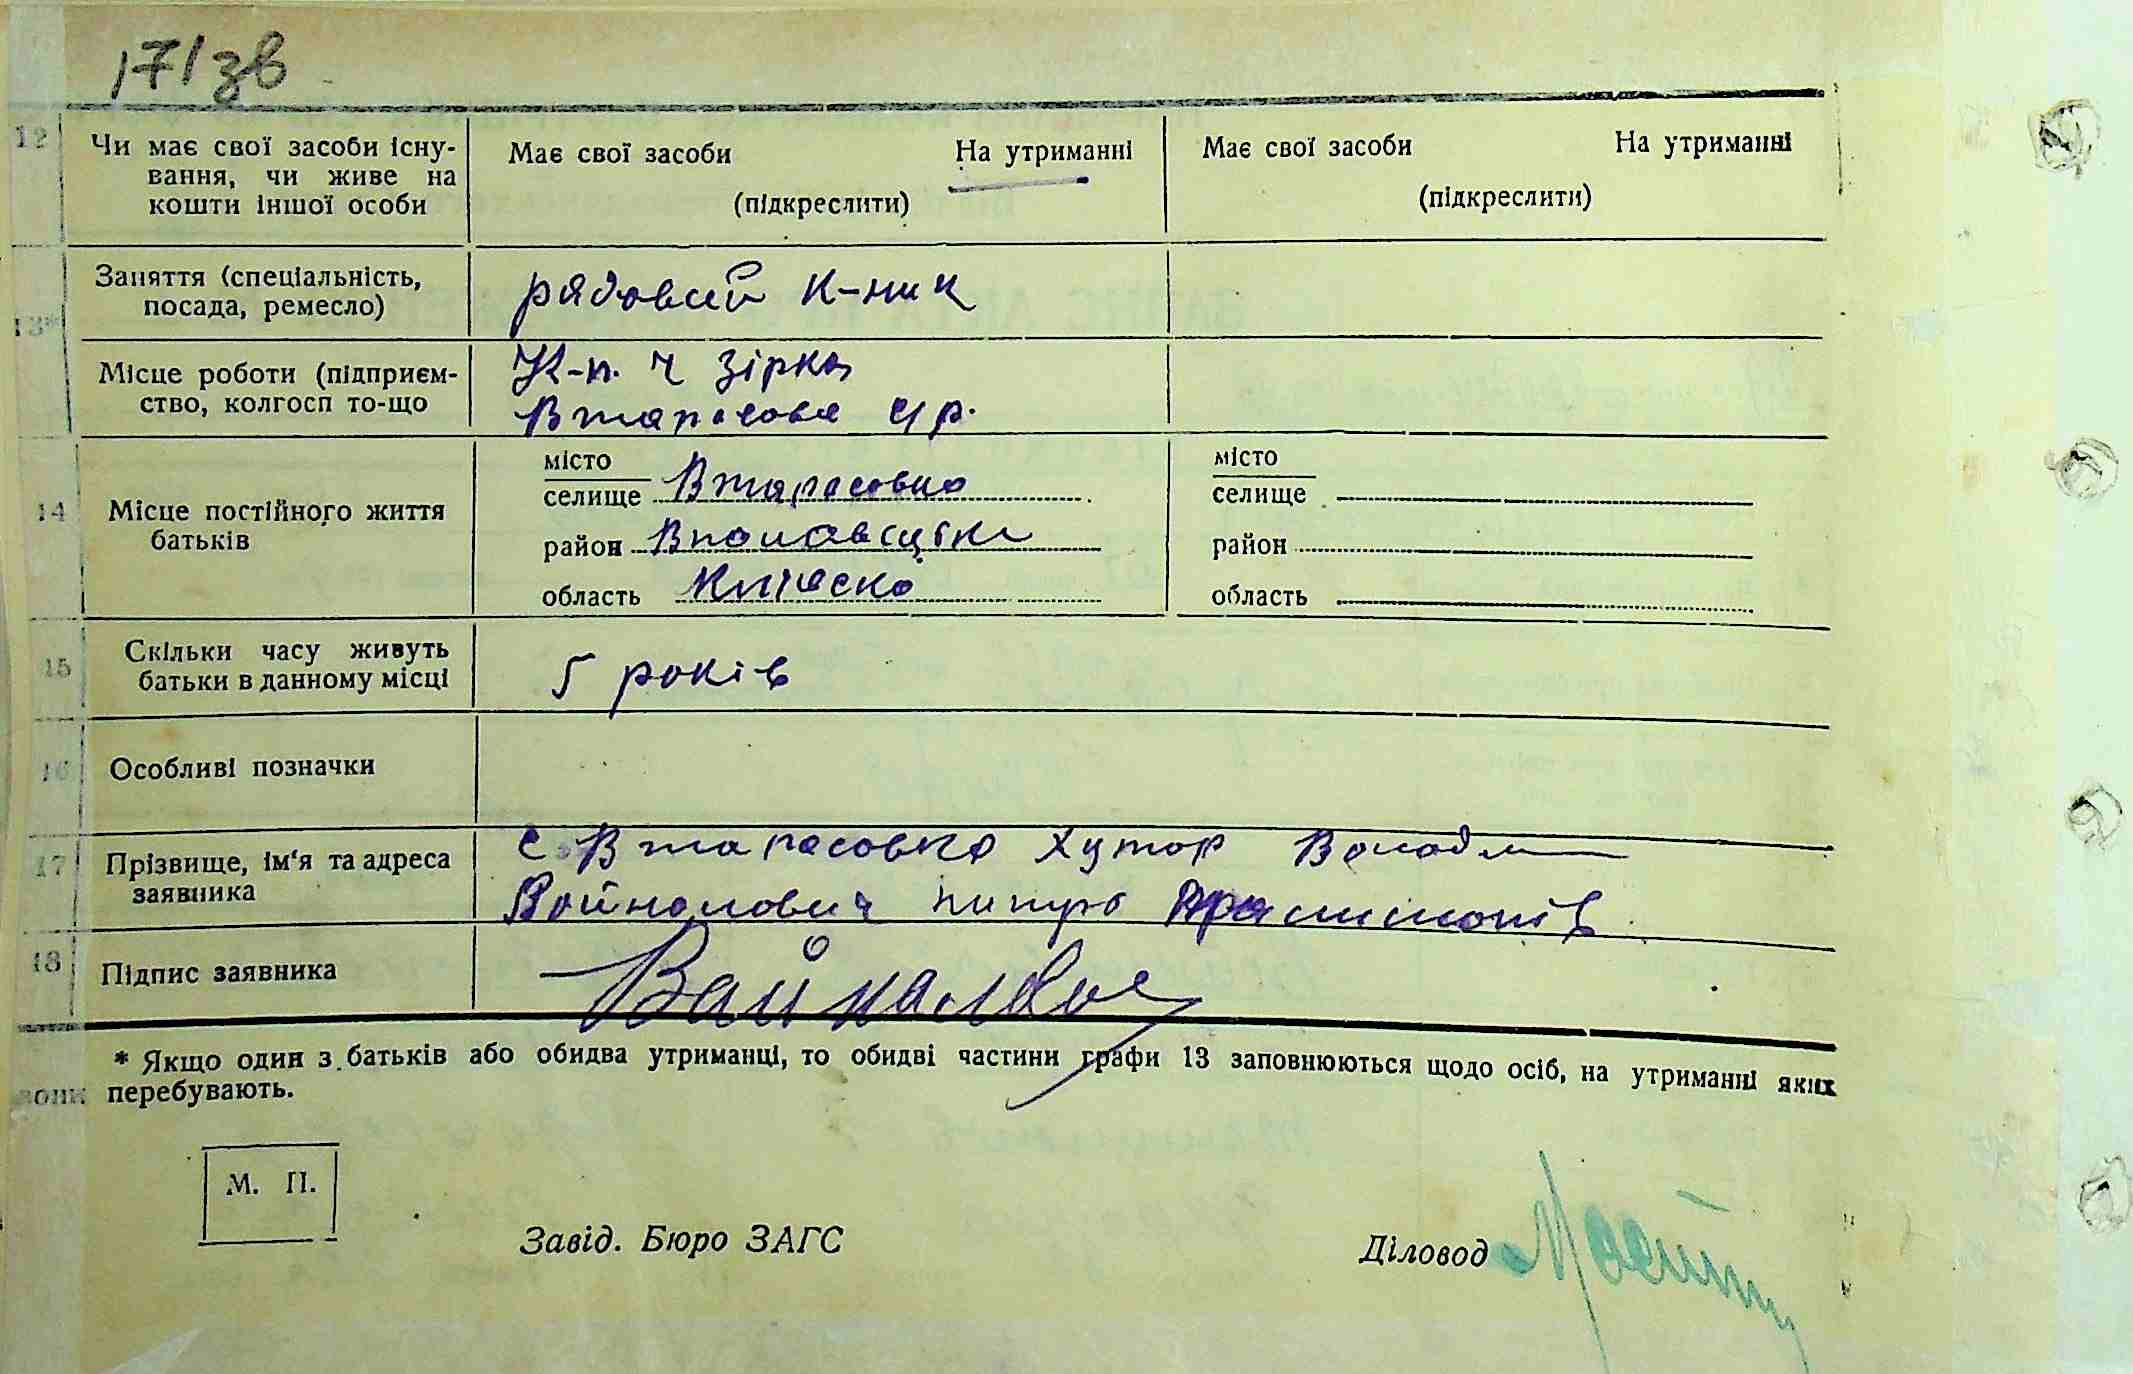 171зв
12 Чи має свої засоби існу- Має свої засоби На утриманні Має свої засоби На утриманні
вання, чи живе на
кошти іншої особи (підкреслити) (підкреслити)
Заняття (спеціальність, рядовий к-ник
13* посада, ремесло)
Місце роботи (підприєм- К-п. Ч Зірка
ство, колгосп то-що Втарасовка
місто місто
селище Втарасовка селище
14 Місце постійного життя
батьків
район район
область Київско область
Скільки часу живуть
15 батьки в данному місці 5 років
16 Особливі позначки
с Втарасовка Хутор
17 Прізвище, ім'я та адреса
заявника Войналович
18 Підпис заявника Вайналович
* Якщо один з батьків або обидва утриманці, то обидві частини графи 13 заповнюються щодо осіб, на утриманні яких
вони перебувають.
М. П.
Завід. Бюро ЗАГС Діловод